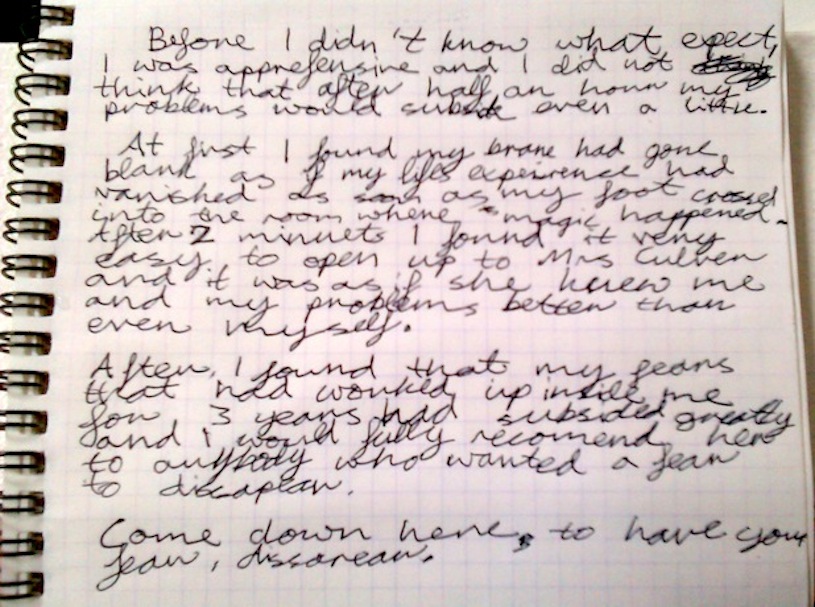 Before I didn't know what expect,
I was apprefensive and I did not
think that after half an hour my
problems would subside even a little.
At first I found my brane had gone
blank as if my lifes expeirence had
vanished as soon as my foot crossed
into the room where "magic happened.
After 2 minuets I found it very
easy to open up to Mrs Culver
and it was as if she knew me
and my problems better than
even myself.
After, I found that my fears
that had worked up inside me
for 3 years had subsided greatly
and I would fully recomend her
to anybody who wanted a fear
to discapear.
Come down here, to have your
fear, dissarear.